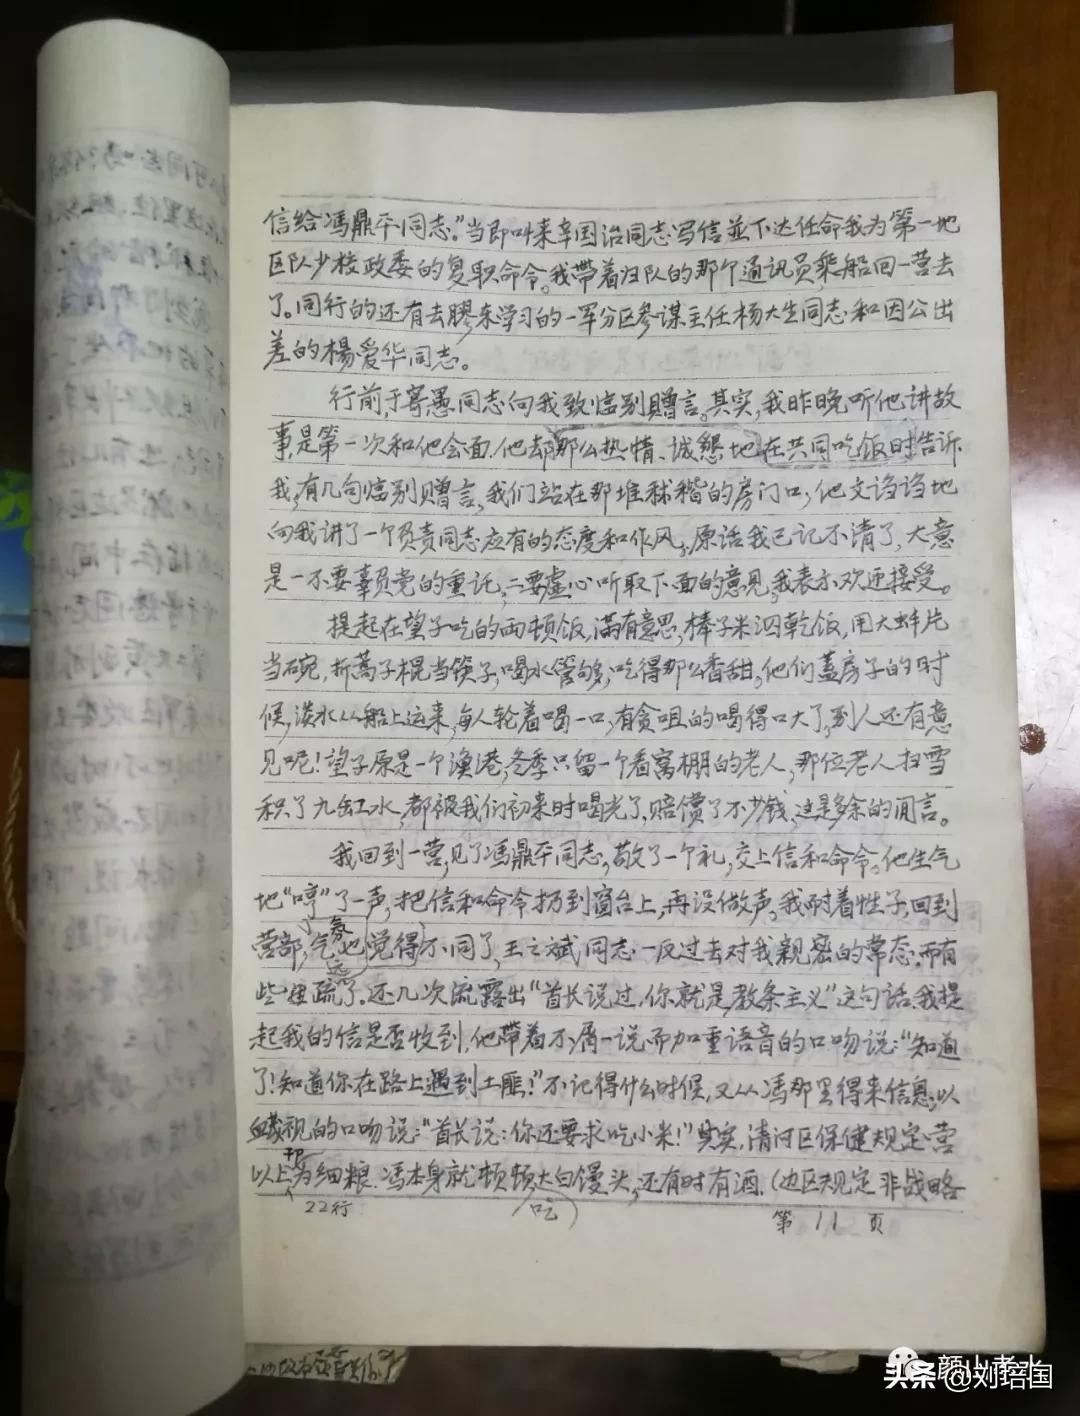 信给馮鼎平同志。”当即叫来辛国治同志写信並下达任命我为第一地
区队少校政委的复职命令。我带着归队的那个通讯员乘船回一营去
了。同行的还有去膠东学习的一军分区参谋主任杨大生同志和因公出
差的楊爱华同志。
行前,于寄愚同志向我致临别贈言。其实,我昨晚听他讲故
事,是第一次和他会面.他却那么热情、诚懇地在共同吃饭时告诉
我,有几句临别贈言,我们站在那堆秫稭的房门口,他文诌诌地
向我讲了一个负责同志应有的态度和作风,原话我已记不清了,大意
是一不要辜負党的重託,二要虚心听取下面的意见,我表示欢迎接受。
提起在望子吃的两顿饭,满有意思,棒子米泅乾饭,用大蚌片
当碗,折蒿子棍当筷子,喝水管够,吃得那么香甜。他们蓋房子的时
候,淡水从船上运来,每人轮着喝一口,有貪咀的喝得口大了,到人还有意
见呢!望子原是一个渔港,冬季只留一个看窩棚的老人,那位老人扫雪
积了九缸水,都被我们初来时喝光了,赔償了不少钱,这是多余的闲言。
我回到一营,见了馮鼎平同志,敬了一个礼,交上信和命令。他生气
地“哼”了一声,把信和命令扔到窗台上,再没做声。我耐着性子,回到
营部,气氛也觉得不同了,王之斌同志一反过去对我親密的常态,而有
些疏远了。还几次流露出“首长说过,你就是教条主义”这句话.我提
起我的信是否收到,他帶着不屑一说而加重语音的口吻说:“知道
了!知道你在路上遇到土匪!”不记得什么时候,又从馮那里得来信息,以
蔑视的口吻说:“首长说:你还要求吃小米!”其实,清河区保健规定营
以上幹为细粮.馮本身就顿顿吃大白馒头,还有时有酒.(边区规定非战略
22行
第 11 页
颜山孝水
头条 @刘培国